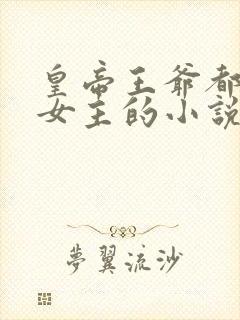 皇帝王爺都
女主的小說
夢翼流沙